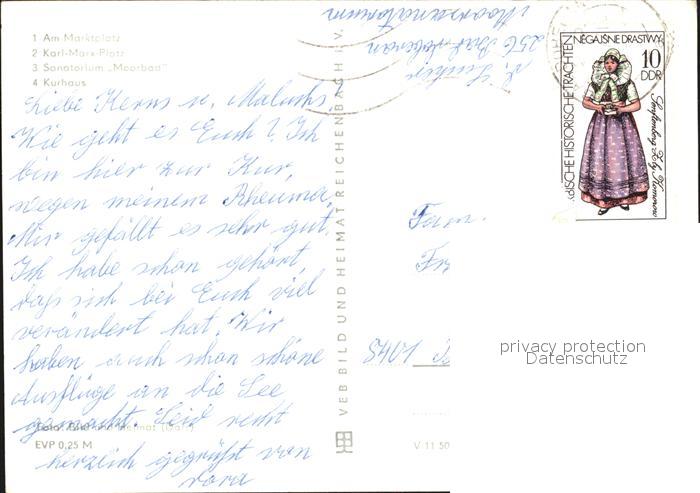 1 Am Marktplatz
2 Karl-Marx-Platz
3 Sanatorium „Moorbad"
4 Kurhaus
Liebe Kerns u. Maluchs!
Wie geht es Euch? Ich
bin hier zur Kur,
wegen meinem Rheuma.
Mir gefällt es sehr gut.
Ich habe schon gehört,
daß sich bei Euch viel
verändert hat. Wir
haben auch schon schöne
Ausflüge an die See
gemacht. Seid recht
herzlich gegrüßt von
Dora
EVP 0,25 M
VEB BILD UND HEIMAT REICHENBACH i. V.
V 11 50
256 Bad Doberan
Moorsanatorium
NĚGAJŠNE DRASTWY
HISTORISCHE TRACHTEN
10
DDR
Senftenberg Zły Komorow
Fam.
Fr
8401
privacy protection
Datenschutz